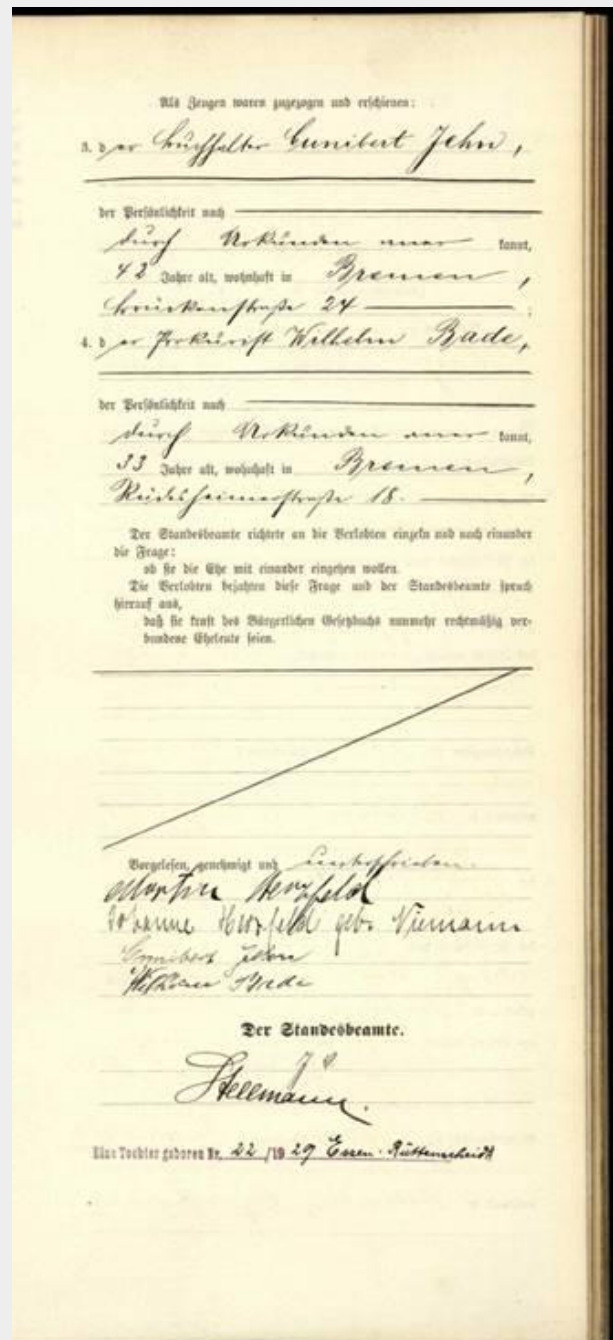 Als Zeugen waren zugezogen und erschienen:
3. der Buchhalter Cunibert Jehn,
der Persönlichkeit nach
durch Urkunden aner kannt,
42 Jahre alt, wohnhaft in Bremen,
Brückenstraße 24
4. der Prokurist Wilhelm Bade,
der Persönlichkeit nach
durch Urkunden aner kannt,
33 Jahre alt, wohnhaft in Bremen,
Rüdesheimerstraße 18.
Der Standesbeamte richtete an die Verlobten einzeln und nach einander
die Frage:
ob sie die Ehe mit einander eingehen wollen.
Die Verlobten bejahten diese Frage und der Standesbeamte sprach
hierauf aus,
daß sie kraft des Bürgerlichen Gesetzbuchs nunmehr rechtmäßig ver-
bundene Eheleute seien.
Vorgelesen, genehmigt und unterschrieben.
Martin Herzfeld
Johanne Herzfeld geb. Niemann
Cunibert Jehn
Wilhelm Bade
Der Standesbeamte.
Stellmann.
Eine Tochter geboren Nr. 22/1929 Essen-Rüttenscheidt